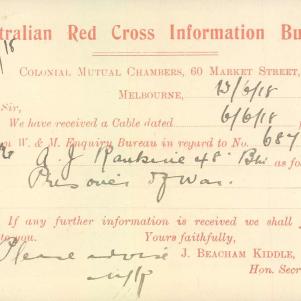 tralian Red Cross Information Bu
/18
Colonial Mutual Chambers, 60 Market Street,
Melbourne, 23/6/18
Sir,
We have received a Cable dated 6/6/18
n W. & M. Enquiry Bureau in regard to No. 687
A. J. Rankine 48 Bn as fo
Prisoner of War.
If any further information is received we shall
to you. Yours faithfully,
Please advise J. Beacham Kiddle,
Hon. Secr